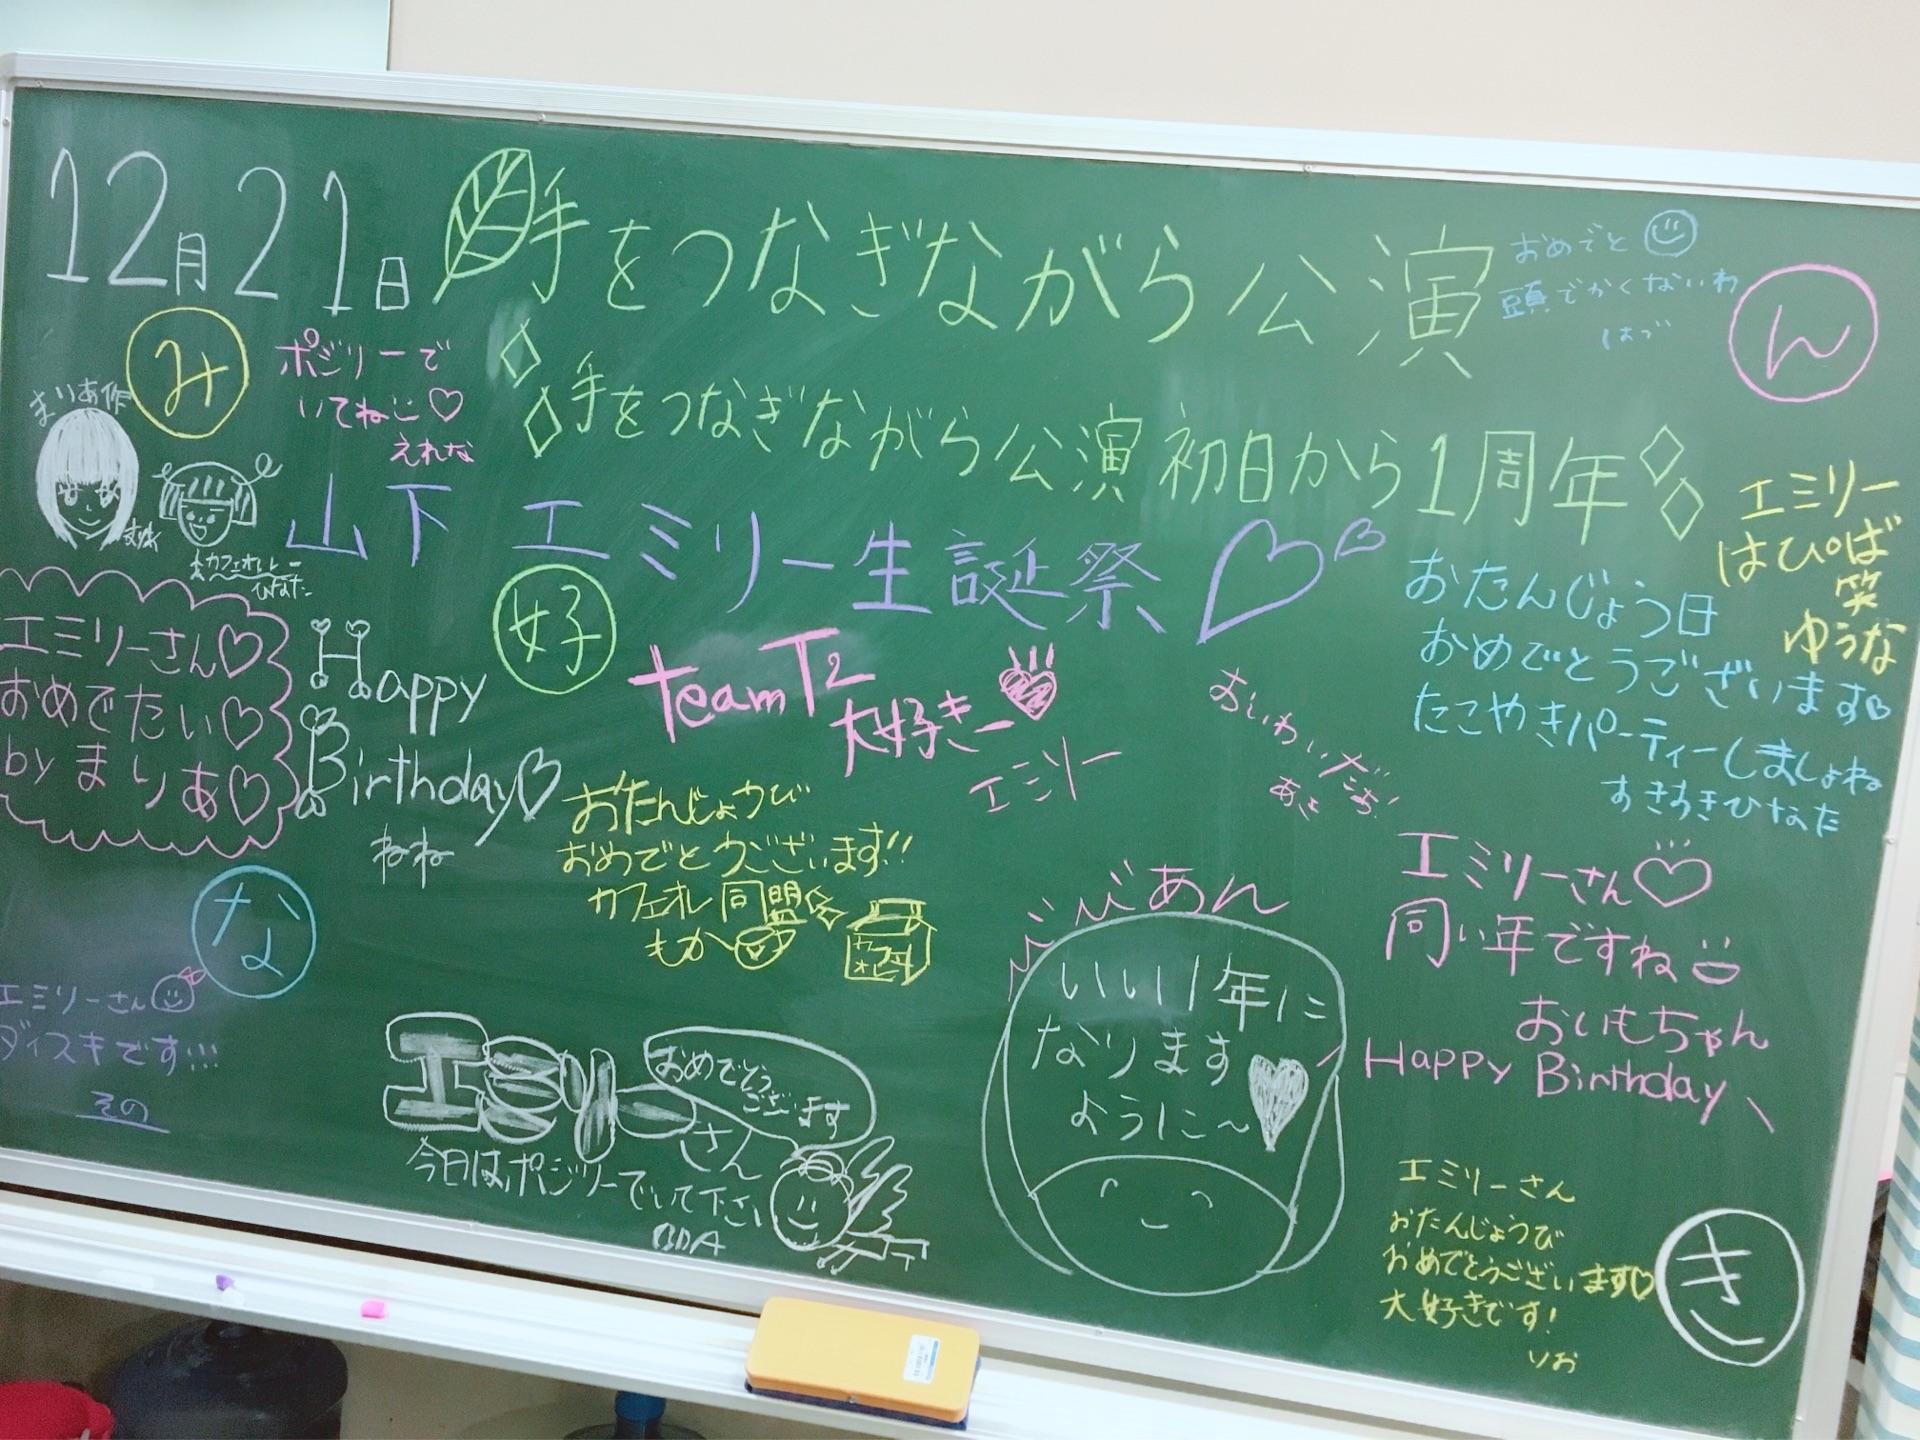 12月21日
手をつなぎながら公演
おめでと
頭でかくないわ
はづ
ん
み
ポジリーで
いてねこ♡
えれな
まりあ作
手をつなぎながら公演 初日から1周年
山下エミリー生誕祭♡
カフェオレー
ひなた
エミリー
はぴば
笑
ゆうな
好
エミリーさん♡
おめでたい♡
byまりあ♡
Happy
Birthday♡
ねね
teamT2
大好きー
エミリー
おいわいだぁ!
おたんじょう日
おめでとうございます♡
たこやきパーティーしましょね
すきすきひなた
おたんじょうび
おめでとうございます!!
カフェオレ同盟☆
もか
な
エミリーさん
ダイスキです!!!
その
びびあん
いい1年に
なります
ように〜
エミリーさん♡
同い年ですね
おいもちゃん
Happy Birthday
エミリーさん
おめでとう
ございます
今日はポジリーでいて下さい
BDA
エミリーさん
おたんじょうび
おめでとうございます♡
大好きです!
りお
き